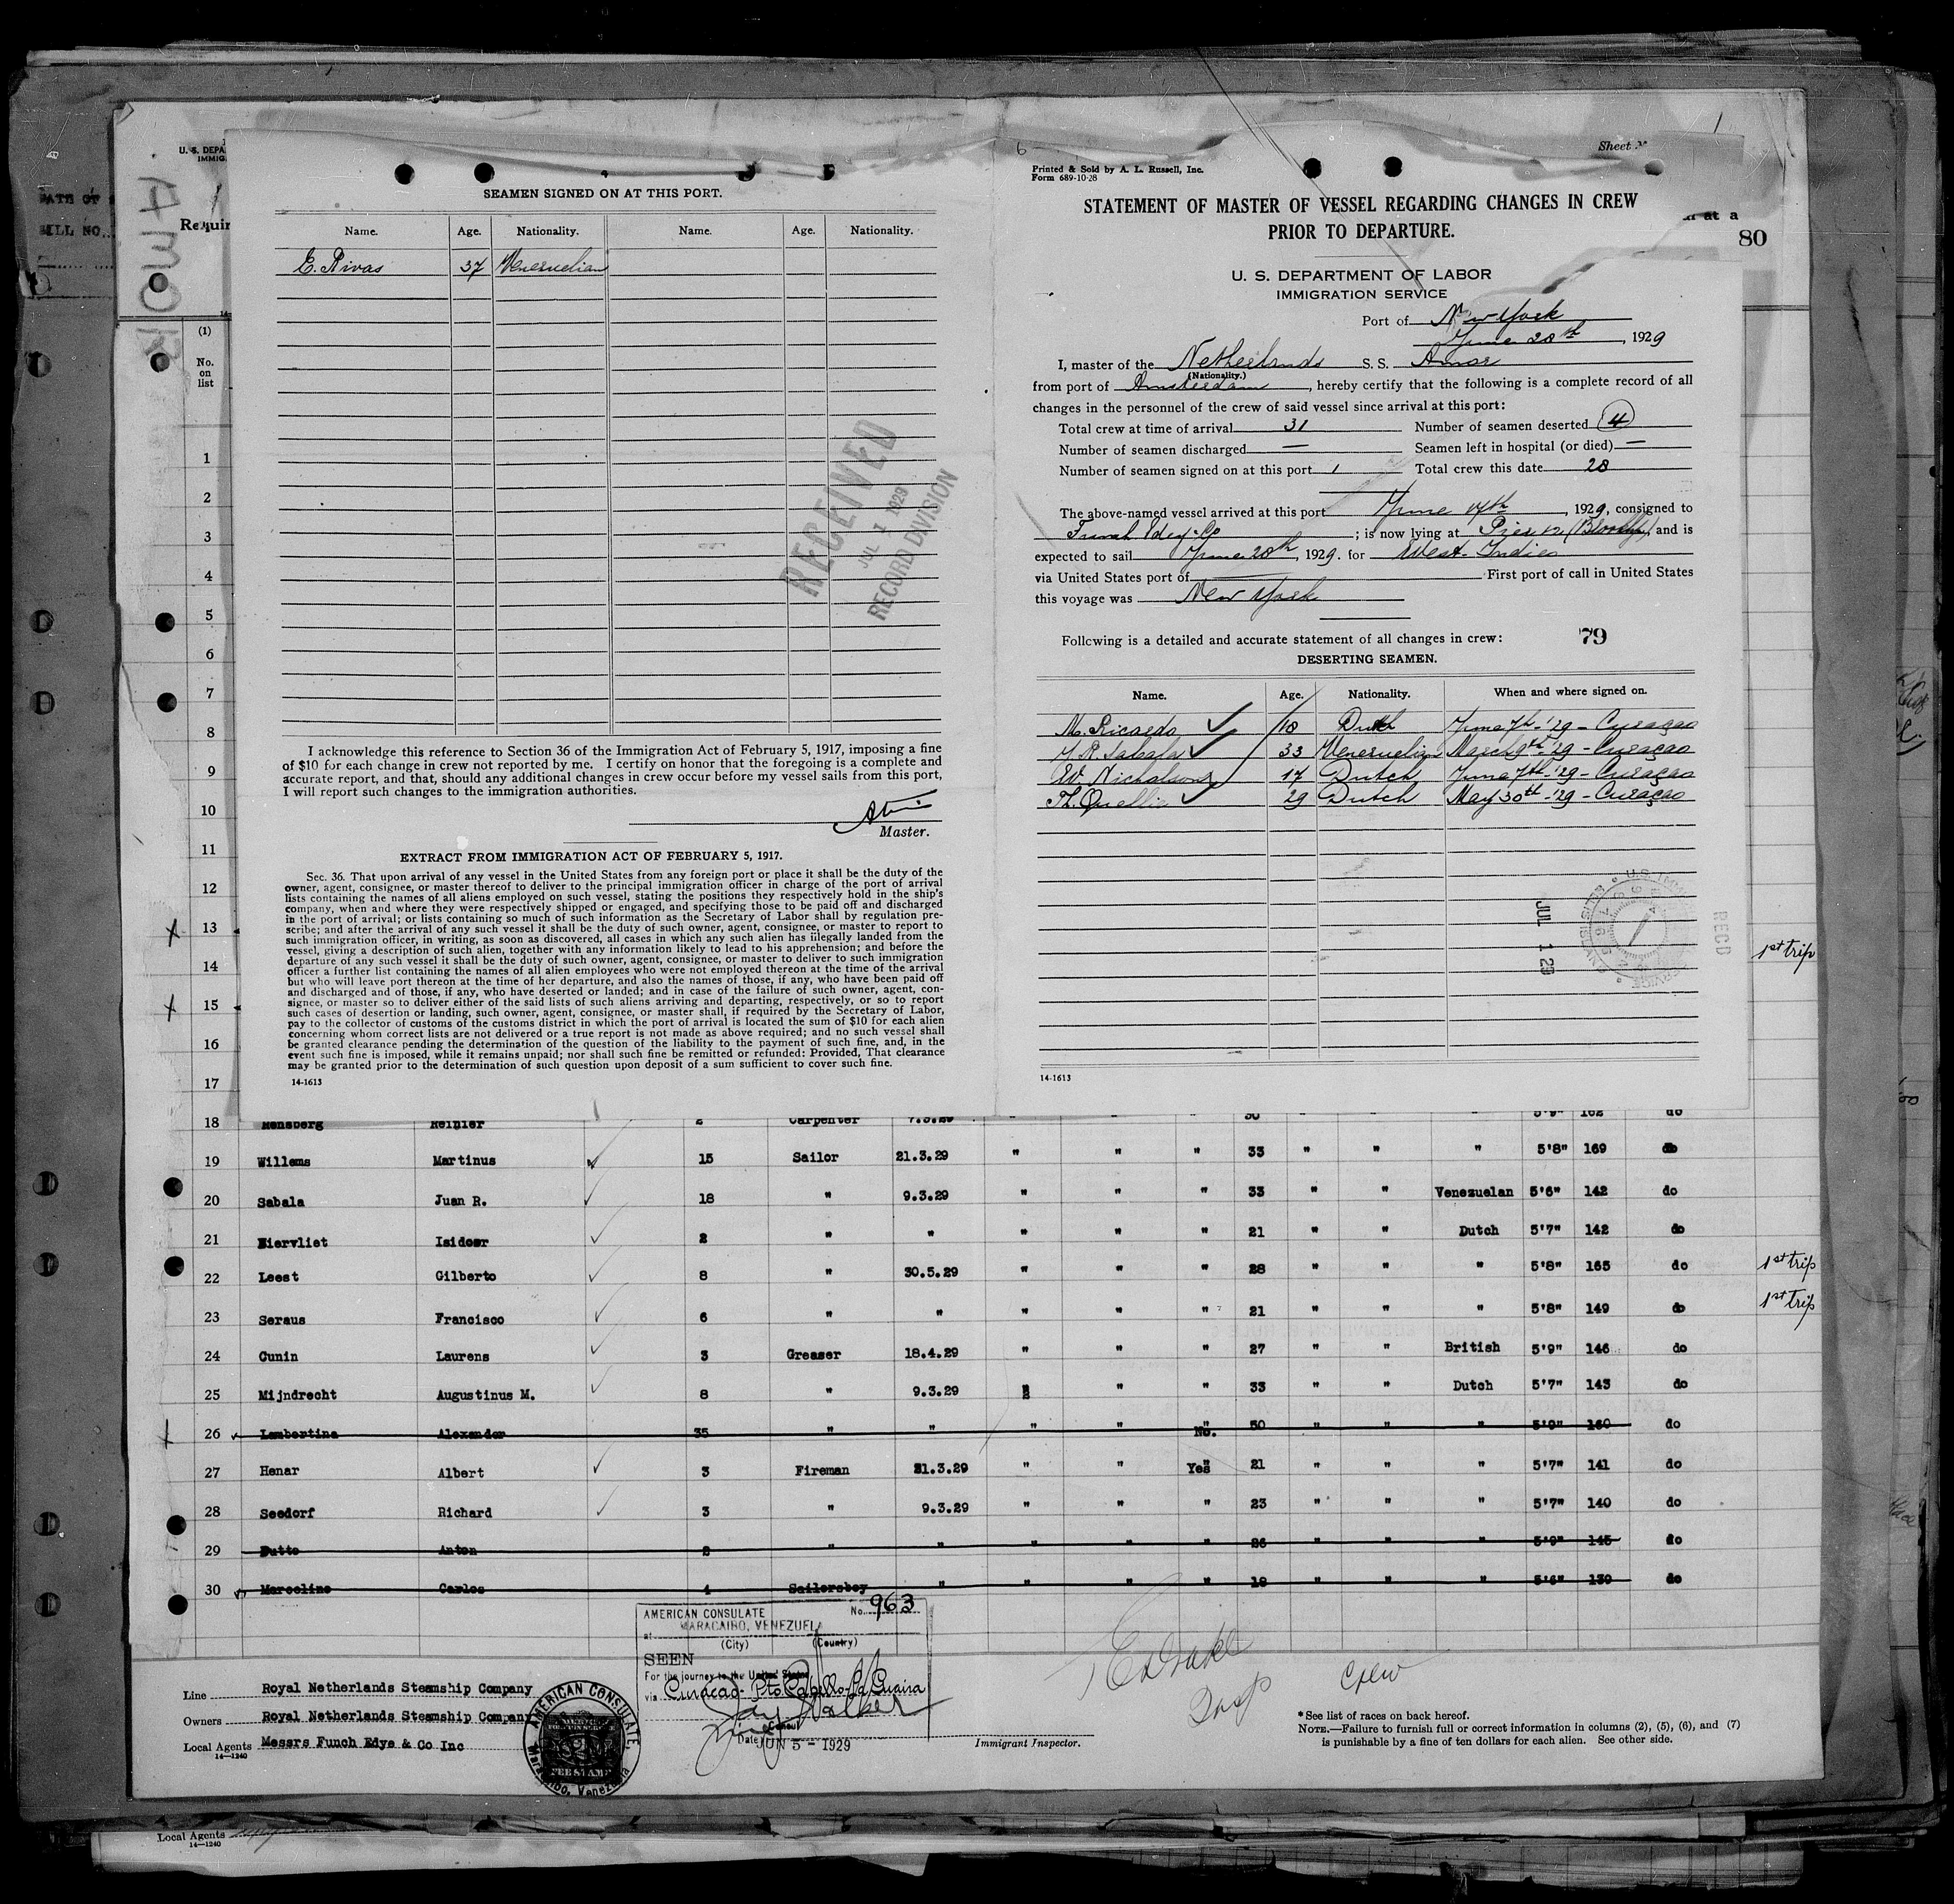 U. S. DEPA
IMMIG
DATE OF
BILL NO.
AMOR
Requir
(1)
No.
on
list
SEAMEN SIGNED ON AT THIS PORT.
Name. Age. Nationality. Name. Age. Nationality.
E. Rivas 37 Venezuelian
RECEIVED
JUL 1 1929
RECORD DIVISION
I acknowledge this reference to Section 36 of the Immigration Act of February 5, 1917, imposing a fine
of $10 for each change in crew not reported by me. I certify on honor that the foregoing is a complete and
accurate report, and that, should any additional changes in crew occur before my vessel sails from this port,
I will report such changes to the immigration authorities.
Master.
EXTRACT FROM IMMIGRATION ACT OF FEBRUARY 5, 1917.
Sec. 36. That upon arrival of any vessel in the United States from any foreign port or place it shall be the duty of the
owner, agent, consignee, or master thereof to deliver to the principal immigration officer in charge of the port of arrival
lists containing the names of all aliens employed on such vessel, stating the positions they respectively hold in the ship's
company, when and where they were respectively shipped or engaged, and specifying those to be paid off and discharged
in the port of arrival; or lists containing so much of such information as the Secretary of Labor shall by regulation pre-
scribe; and after the arrival of any such vessel it shall be the duty of such owner, agent, consignee, or master to report to
such immigration officer, in writing, as soon as discovered, all cases in which any such alien has illegally landed from the
vessel, giving a description of such alien, together with any information likely to lead to his apprehension; and before the
departure of any such vessel it shall be the duty of such owner, agent, consignee, or master to deliver to such immigration
officer a further list containing the names of all alien employees who were not employed thereon at the time of the arrival
but who will leave port thereon at the time of her departure, and also the names of those, if any, who have been paid off
and discharged and of those, if any, who have deserted or landed; and in case of the failure of such owner, agent, con-
signee, or master so to deliver either of the said lists of such aliens arriving and departing, respectively, or so to report
such cases of desertion or landing, such owner, agent, consignee, or master shall, if required by the Secretary of Labor,
pay to the collector of customs of the customs district in which the port of arrival is located the sum of $10 for each alien
concerning whom correct lists are not delivered or a true report is not made as above required; and no such vessel shall
be granted clearance pending the determination of the question of the liability to the payment of such fine, and, in the
event such fine is imposed, while it remains unpaid; nor shall such fine be remitted or refunded: Provided, That clearance
may be granted prior to the determination of such question upon deposit of a sum sufficient to cover such fine.
14-1613
Sheet
Printed & Sold by A. L. Russell, Inc.
Form 689-10-28
STATEMENT OF MASTER OF VESSEL REGARDING CHANGES IN CREW
PRIOR TO DEPARTURE.
at a
80
U. S. DEPARTMENT OF LABOR
IMMIGRATION SERVICE
Port of New York
June 20th, 1929
I, master of the Netherlands S. S. Amor
(Nationality.)
from port of Amsterdam, hereby certify that the following is a complete record of all
changes in the personnel of the crew of said vessel since arrival at this port:
Total crew at time of arrival 31 Number of seamen deserted 4
Number of seamen discharged — Seamen left in hospital (or died) —
Number of seamen signed on at this port 1 Total crew this date 28
The above-named vessel arrived at this port June 17th, 1929, consigned to
Funch Edey Co; is now lying at Pier 12 (Brooklyn) and is
expected to sail June 20th, 1929. for West-Indies
via United States port of First port of call in United States
this voyage was New York
Following is a detailed and accurate statement of all changes in crew: 79
DESERTING SEAMEN.
Name. Age. Nationality. When and where signed on.
M. Ricardo 18 Dutch June 7th-'29 - Curaçao
J. R. Sabala 33 Venezuelian March 9th-'29 - Curaçao
W. Nicholson 17 Dutch June 7th-'29 - Curaçao
Th. Quellie 29 Dutch May 30th-'29 - Curaçao
JUL 1 29
RECD
14-1613
1
2
3
4
5
6
7
8
9
10
11
12
x 13
14 1st trip
x 15
16
17
18 Rensberg Reinier 2 Carpenter 7.3.29 " " " 30 " " " 5'9" 162 do
19 Willems Martinus 15 Sailor 21.3.29 " " " 33 " " " 5'8" 169 do
20 Sabala Juan R. 18 " 9.3.29 " " " 33 " " Venezuelan 5'6" 142 do
21 Biervliet Isidoor 2 " " " " " 21 " " Dutch 5'7" 142 do
22 Leest Gilberto 8 " 30.5.29 " " " 28 " " " 5'8" 165 do 1st trip
23 Seraus Francisco 6 " " " " " 21 " " " 5'8" 149 do 1st trip
24 Cunin Laurens 3 Greaser 18.4.29 " " " 27 " " British 5'9" 146 do
25 Mijndrecht Augustinus M. 8 " 9.3.29 " " " 33 " " Dutch 5'7" 143 do
x 26 Lambertina Alexander 35 " " " " No. 50 " " " 5'9" 160 do
27 Henar Albert 3 Fireman 21.3.29 " " Yes 21 " " " 5'7" 141 do
28 Seedorf Richard 3 " 9.3.29 " " " 23 " " " 5'7" 140 do
29 Dutto Anton 2 " " " " " 26 " " " 5'9" 145 do
30 Marcelino Carlos 4 Sailorsboy " " " " 18 " " " 5'6" 139 do
AMERICAN CONSULATE No. 963
at MARACAIBO, VENEZUELA
(City) (Country)
SEEN
For the journey to the United States
via Curacao - Pto Cabello La Guaira
Jay Walker
Vice Consul
Date JUN 5 - 1929
AMERICAN CONSULATE
Maracaibo, Venezuela
FEE STAMP
Line Royal Netherlands Steamship Company
Owners Royal Netherlands Steamship Company
Local Agents Messrs Funch Edye & Co Inc
14—1240
E Drake
Insp
Crew
Immigrant Inspector.
*See list of races on back hereof.
NOTE.—Failure to furnish full or correct information in columns (2), (5), (6), and (7)
is punishable by a fine of ten dollars for each alien. See other side.
Local Agents
14—1240